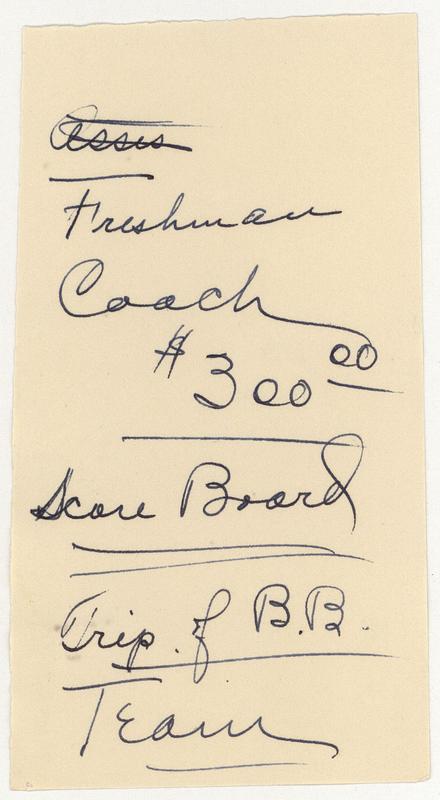 Freshman
Coach
$300.00
Score Board
Trip of B.B.
Team